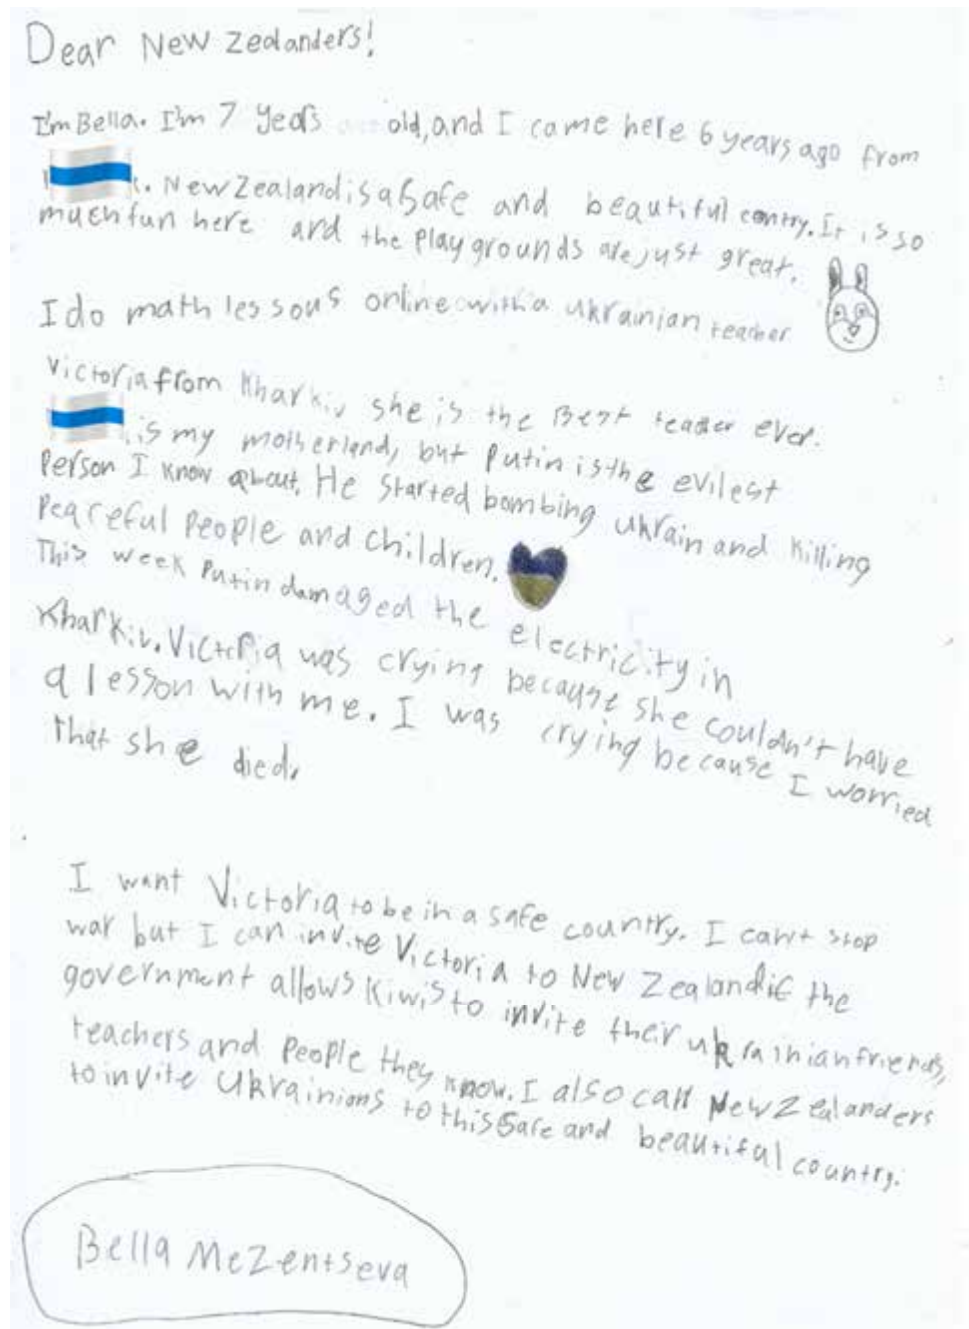 Dear New Zealanders!
I'm Bella. I'm 7 years old, and I came here 6 years ago from
. New Zealand is a safe and beautiful contry. It is so
much fun here and the playgrounds are just great.
I do math lessons online with a Ukrainian teacher
Victoria from Kharkiv she is the Best teacher ever.
is my motherland, but Putin is the evilest
Person I know about. He started bombing Ukrain and killing
Peaceful People and children.
This week Putin damaged the electricity in
Kharkiv. Victoria was crying because she couldn't have
a lesson with me. I was crying because I worried
that she died.
I want Victoria to be in a safe country. I can't stop
war but I can invite Victoria to New Zealand if the
government allows Kiwis to invite their ukrainian friends,
teachers and People they know. I also call New Zealanders
to invite Ukrainians to this Safe and beautiful country.
Bella Mezentseva